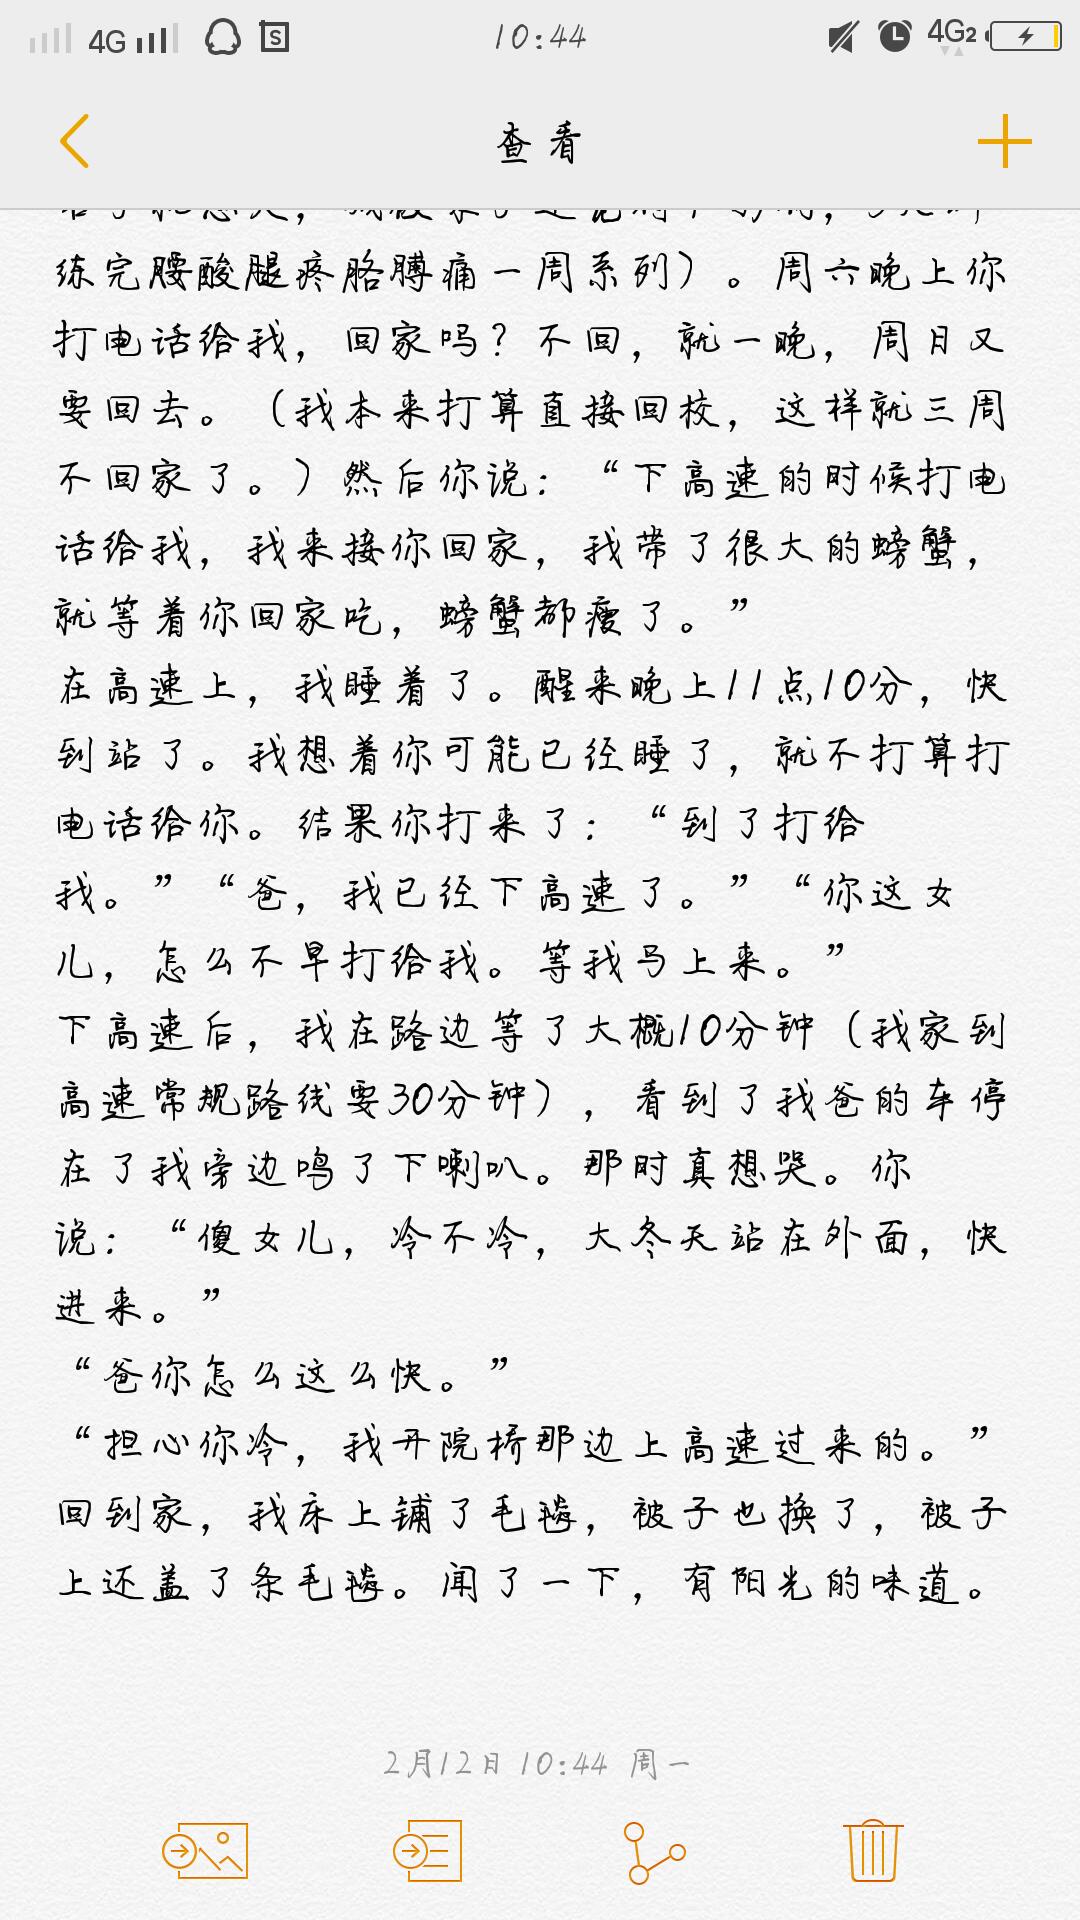 4G
10:44
4G2
查看
练完腰酸腿疼胳膊痛一周系列）。周六晚上你
打电话给我，回家吗？不回，就一晚，周日又
要回去。（我本来打算直接回校，这样就三周
不回家了。）然后你说：“下高速的时候打电
话给我，我来接你回家，我带了很大的螃蟹，
就等着你回家吃，螃蟹都瘦了。”
在高速上，我睡着了。醒来晚上11点10分，快
到站了。我想着你可能已经睡了，就不打算打
电话给你。结果你打来了：“到了打给
我。”“爸，我已经下高速了。”“你这女
儿，怎么不早打给我。等我马上来。”
下高速后，我在路边等了大概10分钟（我家到
高速常规路线要30分钟），看到了我爸的车停
在了我旁边鸣了下喇叭。那时真想哭。你
说：“傻女儿，冷不冷，大冬天站在外面，快
进来。”
“爸你怎么这么快。”
“担心你冷，我开院桥那边上高速过来的。”
回到家，我床上铺了毛毯，被子也换了，被子
上还盖了条毛毯。闻了一下，有阳光的味道。
2月12日 10:44 周一